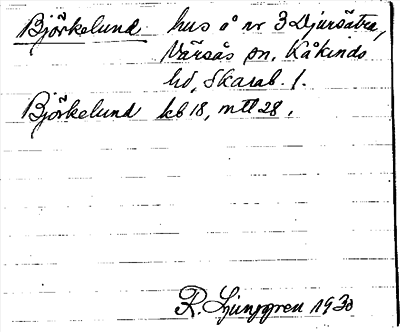 Björkelund hus å nr 3 Djursätra,
Värsås sn. Kåkinds
hd, Skarab. l.
Björkelund kb 18, mtl 28.
R. Ljunggren 1930